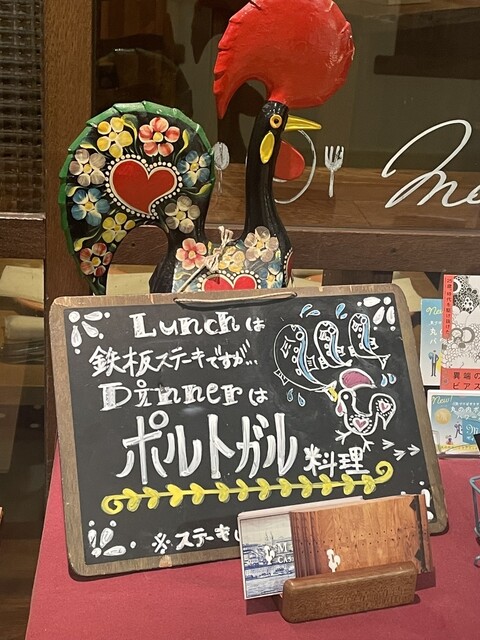 Lunchは
鉄板ステーキですが…
Dinnerは
ポルトガル料理
※ステーキ
Me
New
New!
異端の
ピアス